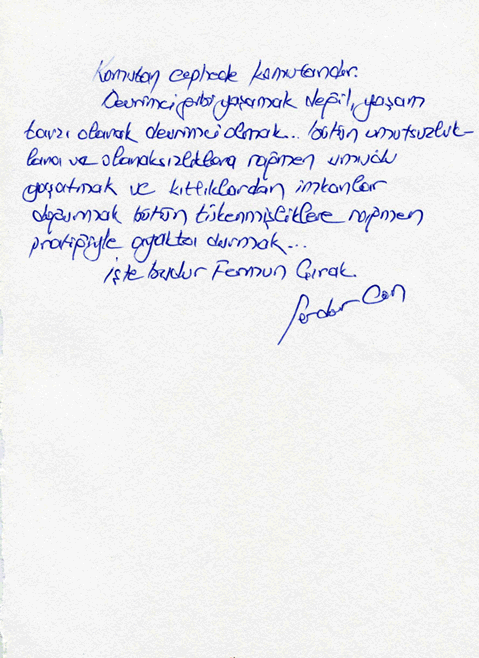 Komutan cephede komutandır.
Devrimci gibi yaşamak değil, yaşam
tarzı olarak devrimci olmak... bütün umutsuzluk-
lara ve olanaksızlıklara rağmen umudu
yaşatmak ve kıtlıklardan imkanlar
doğurmak bütün tükenmişliklere rağmen
pratiğiyle ayakta durmak...
İşte budur Fermun Çırak.
Serdar Can